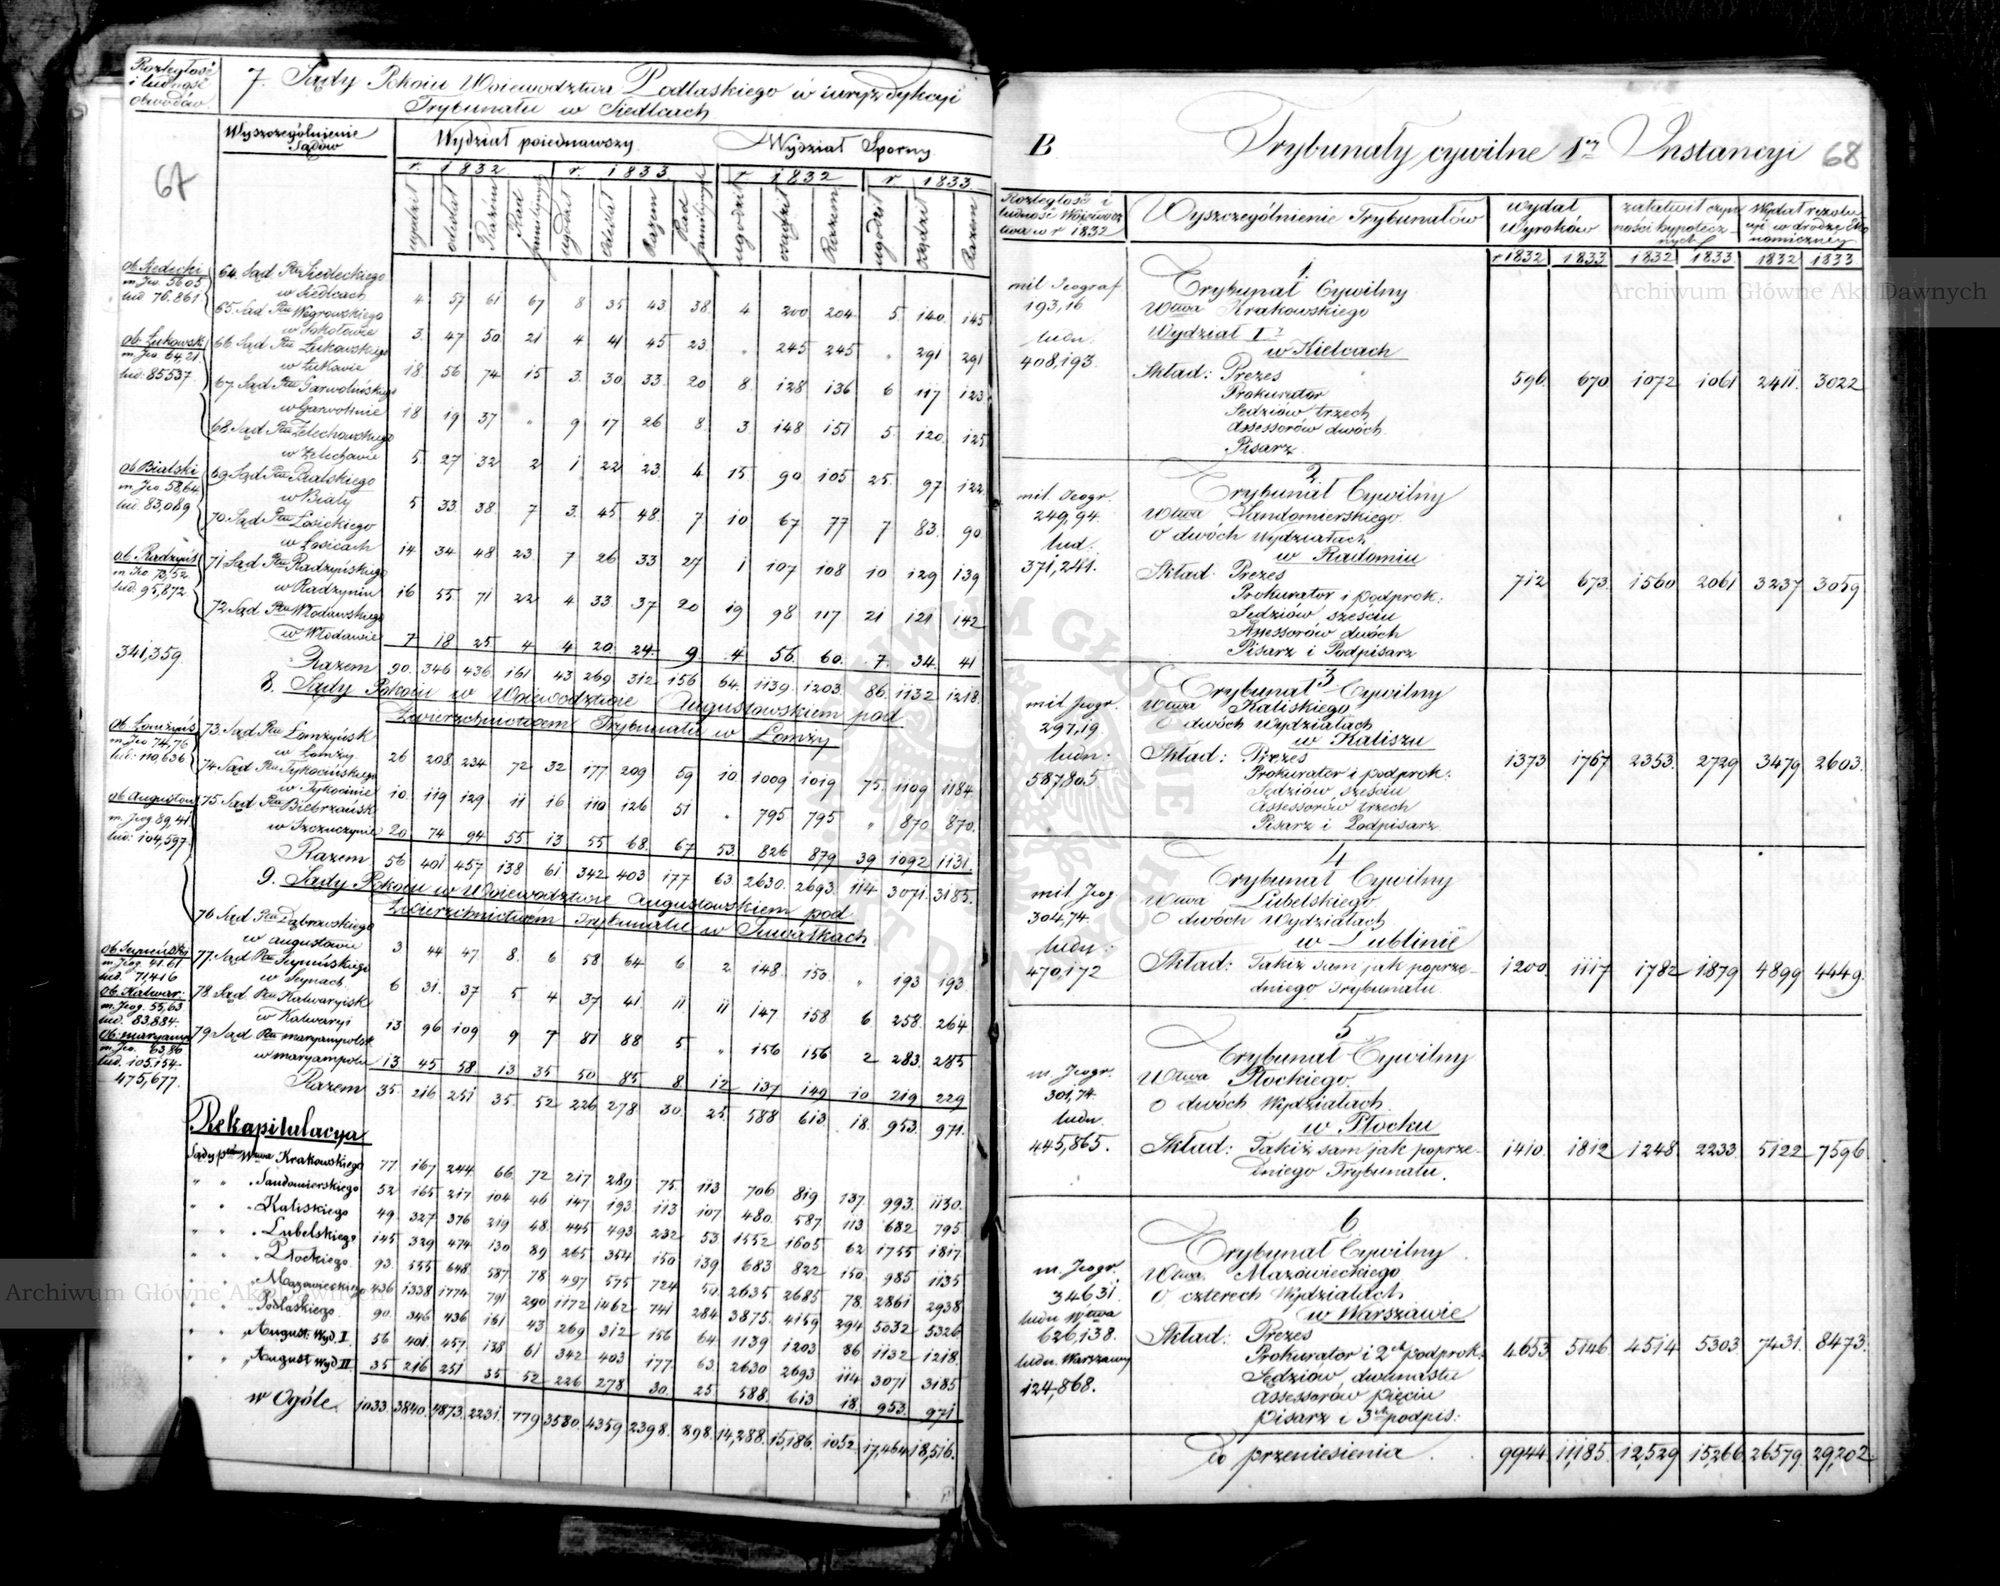 Rozległość
i ludność
obwodów
7. Sądy Pokoiu Woiewodztwa Podlaskiego w iuryzdykcyi
Trybunału w Siedlcach
67
Wyszczególnienie
Sądów
Wydział poiednawszy
Wydział Sporny
r. 1832 r. 1833 r. 1832 r. 1833
ugodził odesłał Razem Rad familijnych ugodził odesłał Razem Rad familijnych ugodził osądził Razem ugodził osądził Razem
ob. Siedlecki
m. Jeo. 56.05
lud 76.861
64. Sąd Ptu Siedleckiego
w Siedlcach 4 57 61 67 8 35 43 38 4 200 204 5 140 145
65. Sąd Ptu Węgrowskiego
w Sokołowie 3. 47 50. 21 4 41 45 23. " 245 245 " 291 291
ob. Łukowsk
m. Jeo 64,21
lud: 85537.
66. Sąd Ptu Łukowskiego
w Łukowie 18. 56 74 15 3. 30. 33. 20 8 128 136 6 117 123
67. Sąd Ptu Garwolińskiego
w Garwolinie 18 19 37 " 9 17 26 8 3. 148 151 5. 120. 125
68. Sąd Ptu Żelechowskiego
w Żelechowie 5. 27 32 2 1 22 23. 4. 15 90 105 25. 97 122
ob Bialski
m Jeo. 58,64
lud. 83,089
69. Sąd Ptu Bialskiego
w Biały 5 33 38 7 3. 45 48. 7 10. 67 77 7 83. 90
70. Sąd Ptu Łosickiego
w Łosicach 14 34 48 23. 7 26 33 27 1 107 108 10 129 139
ob. Radzyńs
m Jeo. 73,52
lud. 95,872
71 Sąd Ptu Radzyńskiego
w Radzyniu 16 55. 71 22 4 33. 37 20 19 98 117. 21 121 142
72 Sąd Ptu Włodawskiego
w Włodawie 7 18 25 4 4 20. 24 9 4 56. 60. 7. 34. 41
341,359.
Razem 90. 346 436. 161 43 269 312 156 64. 1139. 1203. 86. 1132 1218.
8. Sądy Pokoiu w Woiewodztwie Augustowskiem pod
Zwierzchnictwem Trybunału w Łomży
ob. Łomżyńs
m. Jeo 74,76
lud: 110,636
73. Sąd Ptu Łomżyńsk
w Łomży 26 208 234 72 32 177. 209 59 10 1009 1019 75. 1109 1184.
74. Sąd Ptu Tykocińskiego
w Tykocinie 10. 119 129. 11 16 110 126 51 " 795 795 " 870 870.
ob Augustow
m. Jeog 89,41.
lud: 104,597.
75 Sąd Ptu Biebrzańsk
w Szczuczynie 20 74 94 55 13 55 68. 67 53 826 879 39 1092 1131.
Razem 56 401 457 138 61 342 403 177 63 2630. 2693. 114 3071. 3185.
9. Sądy Pokoiu w Woiewodztwie Augustowskiem pod
Zwierzchnictwem Trybunału w Suwałkach
76 Sąd Ptu Dąbrowskiego
w Augustowie 3 44 47. 8. 6 58 64 6 2 148. 150. " 193 193.
ob. Seyneński
m. Jeog. 41.61
lud. 71,416
77. Sąd Ptu Seyneńskiego
w Seynach 6 31. 37 5 4 37 41 11 11 147 158 6 258. 264.
ob. Kalwar.
m. Jeog. 55,63
lud. 83,884.
78 Sąd Ptu Kalwaryisk
w Kalwaryi 13 96 109 9 7 81 88 5. " 156 156 2 283. 285
ob: maryamp
m. Jeo. 63,86
lud. 105.154
475,677.
79. Sąd Ptu maryampolsk
w maryampolu 13. 45 58 13 35 50 85 8 12 137 149 10 219 229
Razem 35. 216 251 35. 52 226 278 30. 25 588 613. 18. 953. 971.
Rekapitulacya
Sądy ptów Wwa Krakowskiego 77. 167 244 66 72 217 289 75. 113 706 819 137. 993. 1130.
" " " Sandomierskiego 52 165 217 104 46 147 193. 113 107 480. 587 113 682 795
" " " Kaliskiego 49. 327 376 219 48 445 493 232 53 1552 1605 62 1755 1817
" " " Lubelskiego 145 329 474 130 89 265 354 150 139 683 822 150. 985 1135
" " " Płockiego. 93. 555 648 587 78 497 575 724 50 2635 2685 78. 2861 2938
" " " Mazowieckiego 436 1338 1774 791 290 1172 1462 741 284 3875 4159 294 5032 5326
" " " Podlaskiego. 90. 346 436 161 43 269 312 156 64 1139 1203 86 1132 1218.
" " " August: Wyd. I. 56 401 457 138 61 342 403 177. 63 2630 2693 114 3071 3185
" " " August Wyd II 35 216 251 35 52 226 278 30. 25 588. 613 18. 953 971
w Ogóle. 1033. 3840. 4873. 2231. 779 3580. 4359 2398. 898. 14,288. 15,186. 1052. 17,464 18,516.
B.
Trybunały cywilne 1ey Instancyi
68
Rozległość i
ludność Wojewodz
twa w r 1832
Wyszczególnienie Trybunałów
wydał
Wyroków
załatwił czyn
ności hypotecz-
nych
Wydał rezolu
cyi w drodze Eko
nomiczney
r 1832 1833 1832 1833 1832 1833
1.
mil Jeograf
193,16
ludn.
408,193.
Trybunał Cywilny
Wtwa Krakowskiego
Wydział Iy
w Kielcach
Skład: Prezes 596. 670 1072 1061 2411. 3022
Prokurator
Sędziów trzech
Assessorów dwóch
Pisarz.
2.
mil. Jeogr.
249,94.
lud:
371,241.
Trybunał Cywilny
Wtwa Sandomierskiego.
O dwóch Wydziałach
w Radomiu
Skład. Prezes 712 673. 1560 2061 3237 3059
Prokurator i podprok:
Sędziów sześciu
Assessorów dwóch
Pisarz i Podpisarz
3
mil Jeogr.
297,19
ludn.
587,805.
Trybunał Cywilny
Wtwa Kaliskiego
O dwóch Wydziałach
w Kaliszu
Skład: Prezes 1373 1767 2353. 2729 3479 2603.
Prokurator i podprok:
Sędziów sześciu
Assessorów trzech
Pisarz i Podpisarz.
4
mil Jeog.
304,74.
ludn:
470,172
Trybunał Cywilny
Wtwa Lubelskiego
O dwóch Wydziałach
w Lublinie
Skład: Takiż sam jak poprze- 1200. 1117 1782 1879 4899 4449.
dniego Trybunału.
5
m. Jeogr.
301,74.
ludn.
445,865.
Trybunał Cywilny
Wtwa Płockiego.
O dwóch Wydziałach
w Płocku
Skład: Takiż sam jak poprze- 1410. 1812 1248 2233 5122 7596.
dniego Trybunału.
6.
m. Jeogr.
346.31.
ludn Wtwa
626,138.
ludn. Warszawy
124,868.
Trybunał Cywilny.
Wtwa. Mazowieckiego.
O czterech Wydziałach
w Warszawie
Skład: Prezes 4653 5146 4514 5303 7431. 8473.
Prokurator i 2ch podprok:
Sędziów dwunastu
Assessorów pięciu
Pisarz i 3ch podpis:
Do przeniesienia. 9944. 11,185. 12,529 15,266 26579. 29,202.
Archiwum Główne Akt Dawnych
Archiwum Główne Akt Dawnych
ARCHIWUM GŁÓWNE AKT DAWNYCH